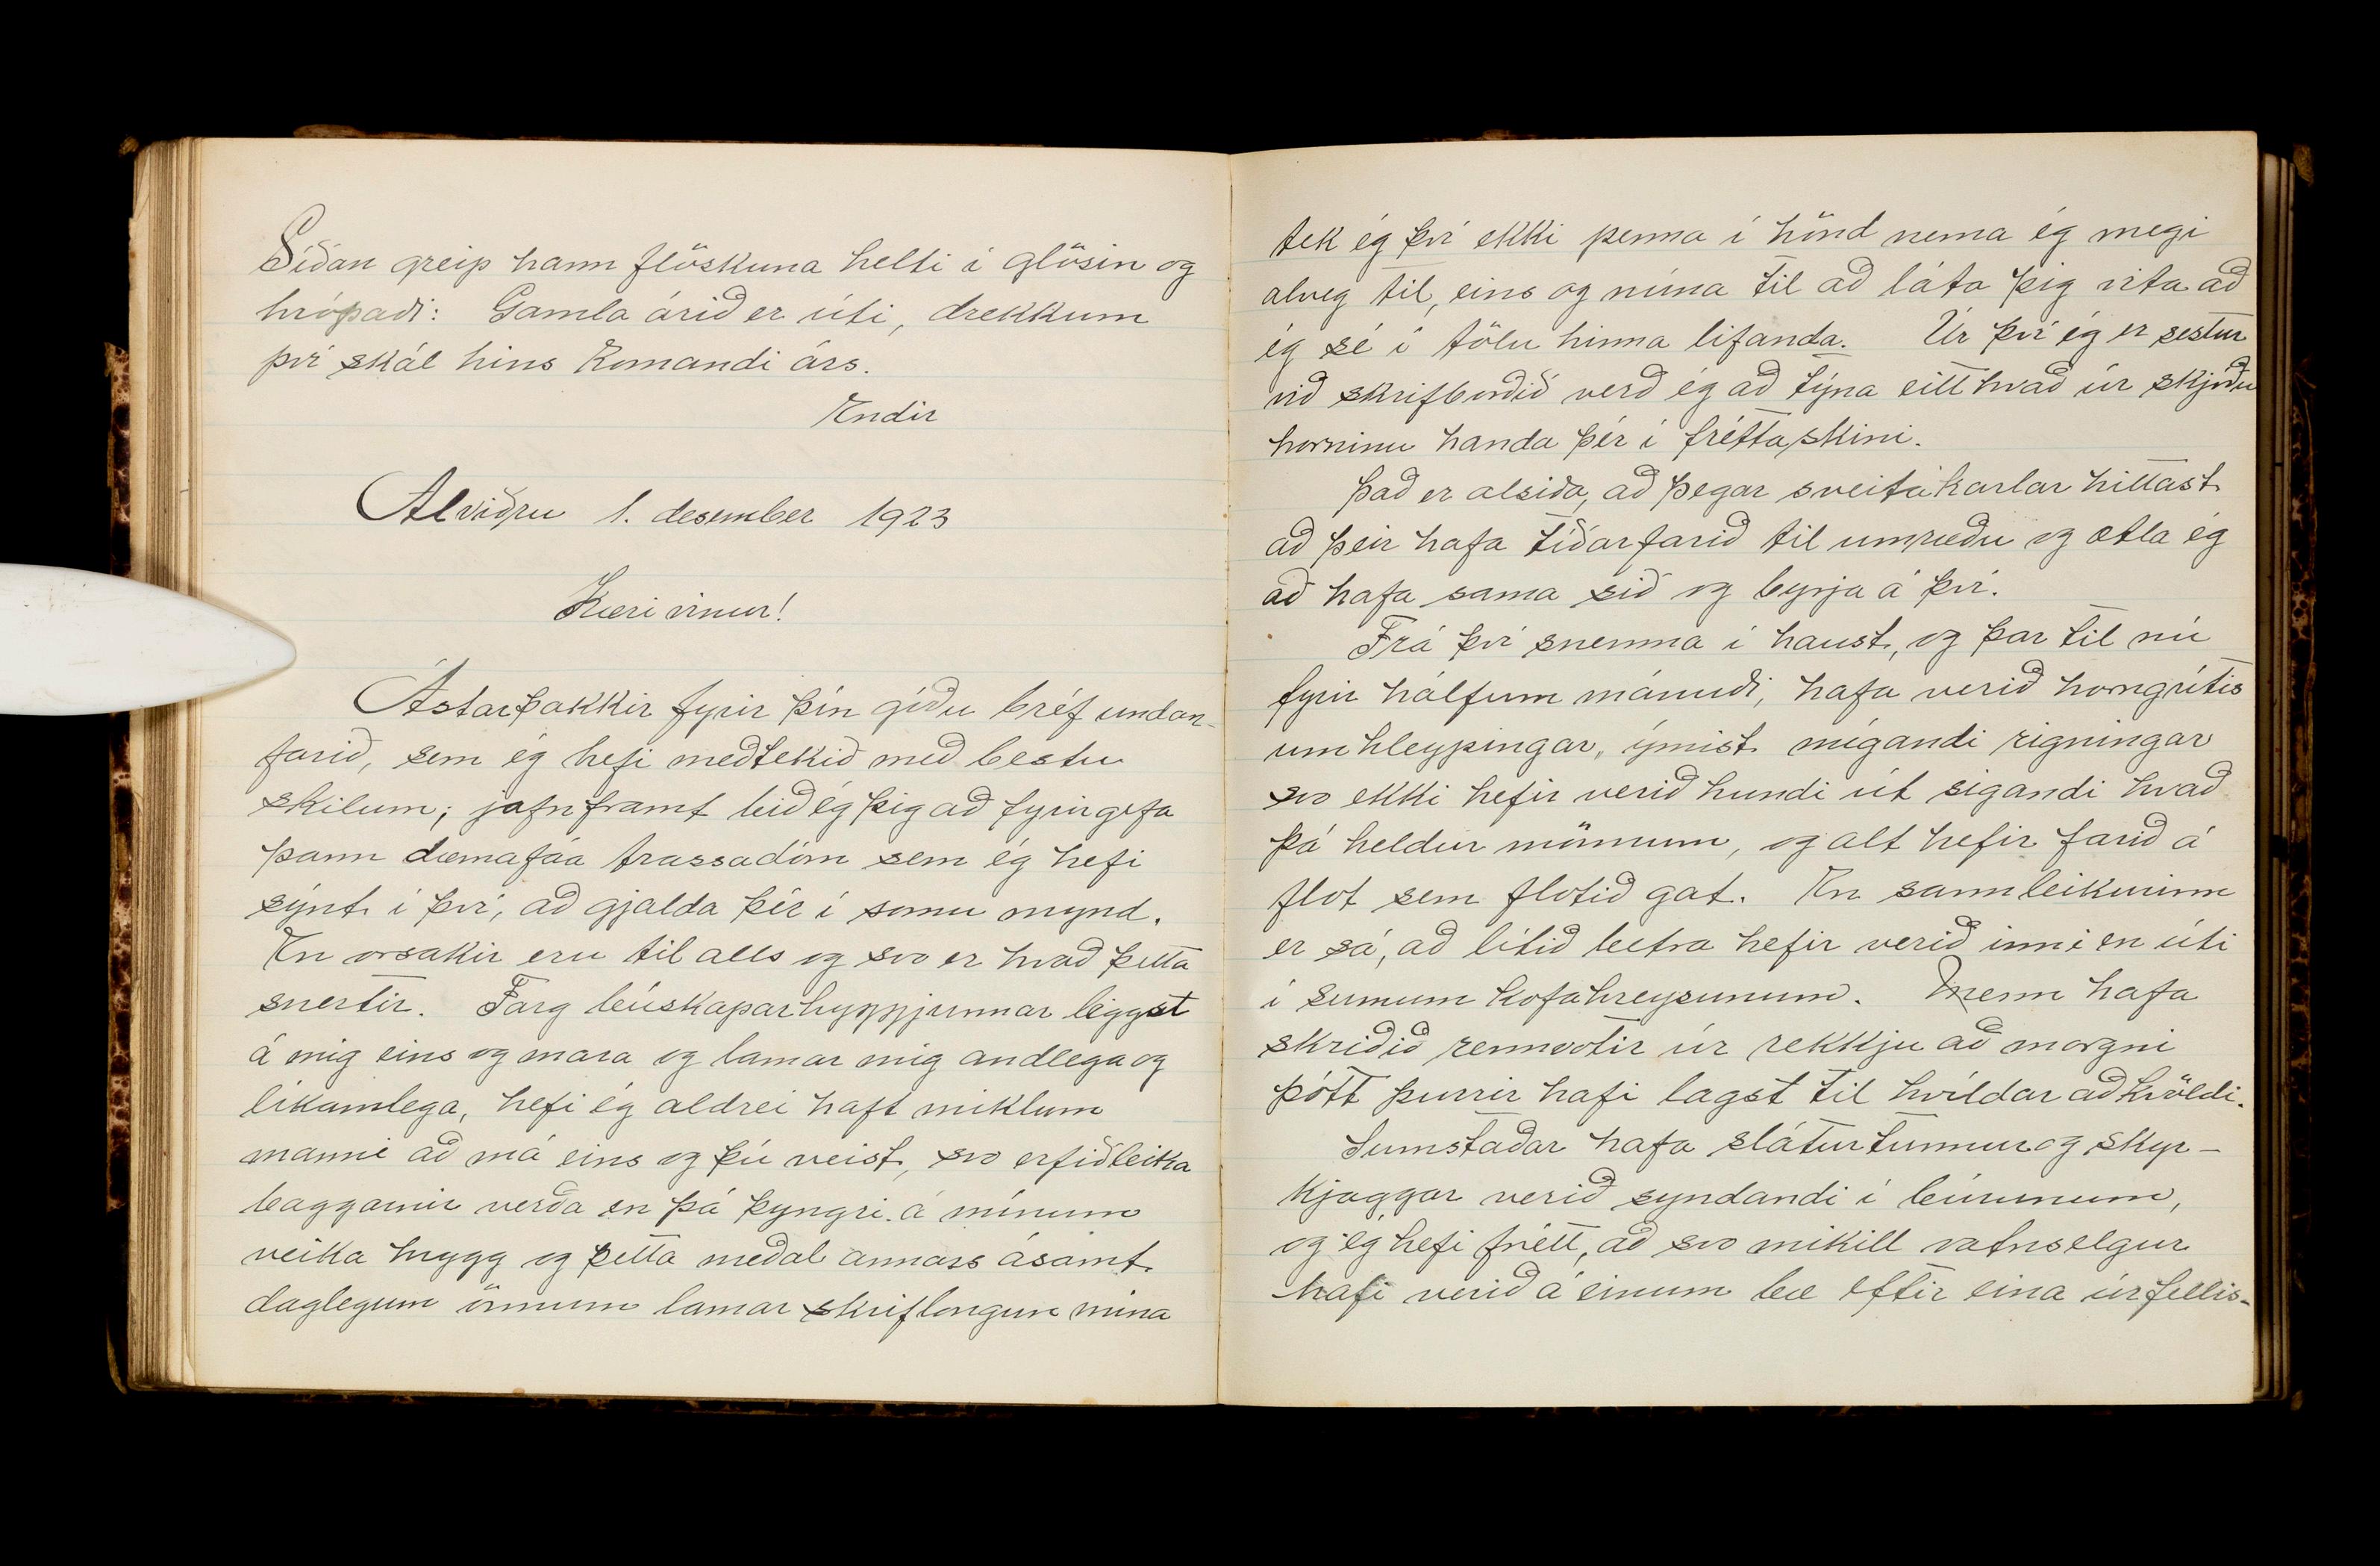 Síðan greip hann flöskuna helti í glösin og
hrópaði: Gamla árið er úti, drekkum
því skál hins komandi árs.
Endir
Alviðru 1. desember 1923
Kæri vinur!
Ástarþakkir fyrir þín góðu bréf undan-
farið, sem ég hefi meðtekið með bestu
skilum; jafnframt bið ég þig að fyrirgefa
þann dæmafáa trassadóm sem ég hefi
sýnt í því, að gjalda þér í somu mynd.
En orsakir eru til alls og svo er hvað þetta
snertir. Farg búskaparhyggjunnar leggst
á mig eins og mara og lamar mig andlega og
líkamlega, hefi ég aldrei haft miklum
manni að má eins og þú veist, svo erfiðleika
baggarnir verða en þá þyngri á mínum
veika hrygg og þetta meðal annars ásamt
daglegum önnum lamar skriflongun mína
tek ég því ekki penna í hönd nema ég megi
alveg til, eins og núna til að láta þig vita að
ég sé í tölu hinna lifanda. Úr því ég er sestur
við skrifborðið verð ég að týna eitthvað úr skjóðu
horninu handa þér í fréttaskini.
Það er alsiða, að þegar sveitakarlar hittast
að þeir hafa tíðarfarið til umræðu og ætla ég
að hafa sama sið og byrja á því.
Frá því snemma í haust, og þar til nú
fyrir hálfum mánuði, hafa verið horngrítis
umhleypingar, ýmist mígandi rigningar
svo ekki hefir verið hundi út sigandi hvað
þá heldur mönnum, og alt hefir farið á
flot sem flotið gat. En sannleikurinn
er sá, að lítið betra hefir verið inni en úti
í sumum kofahreysunum. Menn hafa
skriðið rennvotir úr rekkju að morgni
þótt þurrir hafi lagst til hvíldar að kvöldi.
Sumstaðar hafa sláturtunnur og skyr-
kjaggar verið syndandi í búrunum,
og ég hefi frétt, að svo mikill vatnselgur
hafi verið á einum bæ eftir eina úrfellis-